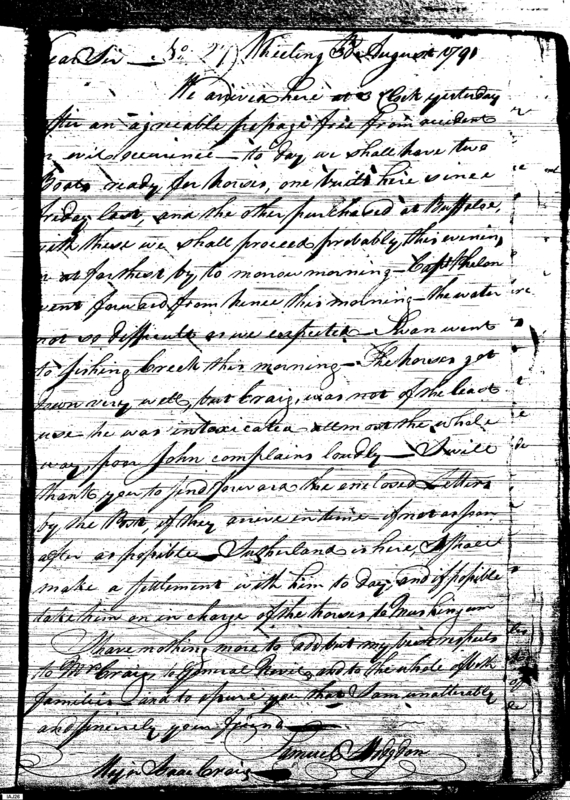 Dear Sir — No 27) Wheeling 30 August 1791
We arrived here at 3 oClock yesterday
after an agreeable passage free from accident
evil occurrence — to day we shall have two
Boats ready for horses, one built here since
friday last, and the other purchased at Buffaloe,
with these we shall proceed probably this evening
or at farthest by to morrow morning — Capt Phelon
went forward from hence this morning — the water
not so difficult as we expected — Swan went
to fishing Creek this morning — The horses got
down very well, but Craig, was not of the least
use he was intoxicated allmost the whole
way, poor John complains loudly — I will
thank you to send forward the enclosed Letters
by the Post, if they arrive in time — if not as soon
after as possible — Sutherland is here, I shall
make a settlement with him to day, and if possible
take him on in charge of the horses to Muskingum
I have nothing more to add but my best respects
to Mrs Craig, to General Nevil, and to the whole of both
families — and to assure you that I am unalterably
and sincerely your friend —
Samuel Hodgdon
Major Isaac Craig
IAJ26